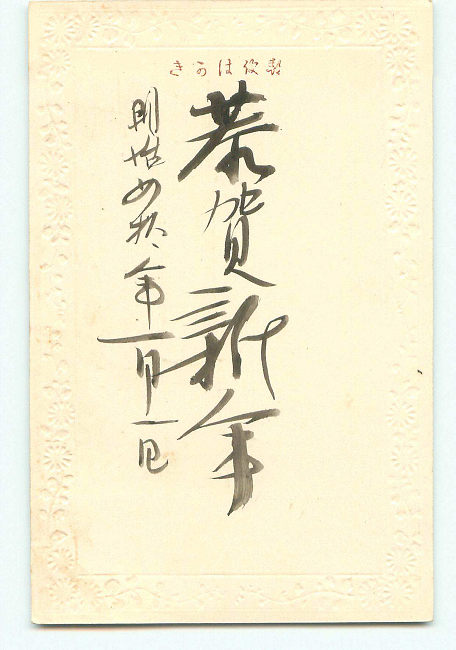 郵便はかき
恭賀新年
明治四拾年一月一日